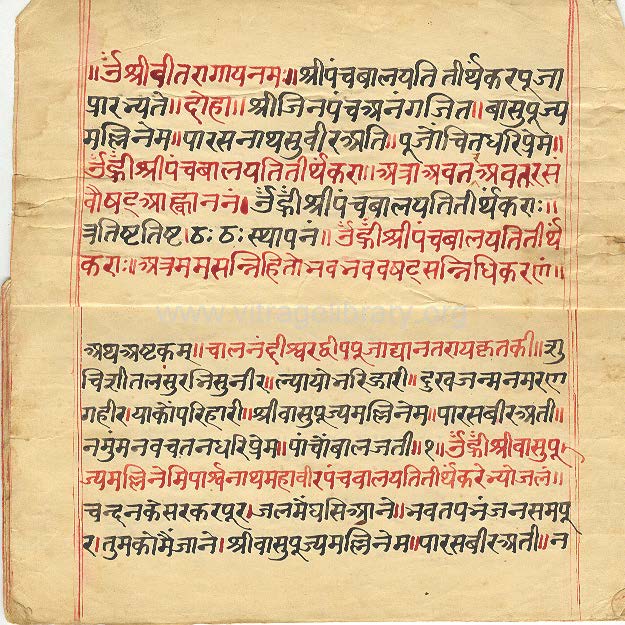 ॥ॐ श्रीवीतरागायनमः॥श्रीपंचबालयतितीर्थंकरपूजा
प्रारभ्यते॥दोहा॥श्रीजिनपंचअनंगजित॥बासुपूज्य
मल्लिनेम॥पारसनाथसुवीरअति॥पूजोंचितधरिप्रेम॥
ॐह्रींश्रीपंचबालयतितीर्थंकरा॥अत्राअवतंअवतरसं
वौषट्आह्वाननं॥ॐह्रींश्रीपंचबालयतितीर्थंकराः॥
त्रतिष्टतिष्ट।ठः ठः स्थापनं॥ॐह्रींश्रीपंचबालयतितीर्थं
कराः॥अत्रममसन्निहितोभवभववषट्सन्निधिकरणं॥
www.vitragelibrary.org
अथअष्टकम्॥चालनंदीश्वरद्वीपपूजाद्यानतरायकृतकी॥शु
चिशीतलसुरभिसुनीर॥ल्यायोभरिझारी॥दुखजन्मनमरण
गहीर।याकोंपरिहारी॥श्रीवासुपूज्यमल्लिनेम॥पारसबीरअती॥
नमुंमनवचतनधरिप्रेम॥पांचोंबालजती॥१॥ॐह्रींश्रीवासुपू
ज्यमल्लिनेमिपार्श्वनाथमहावीरपंचबालयतितीर्थंकरेभ्योजलं॥
चन्दनकेसरकरपूर।जलमेंघसिआने॥भवतपभंजनसमपू
र।तुमकोमैंजाने।श्रीवासुपूज्यमल्लिनेम॥पारसबीरअती॥न